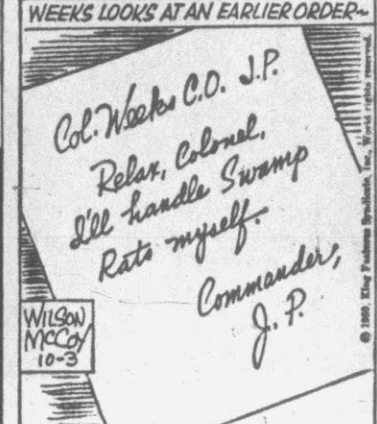 WEEKS LOOKS AT AN EARLIER ORDER~
Col. Weeks C.O. J.P.
Relax, Colonel,
I'll handle Swamp
Rats myself.
Commander,
J. P.
WILSON
McCOY
10-3
© 1960, King Features Syndicate, Inc., World rights reserved.